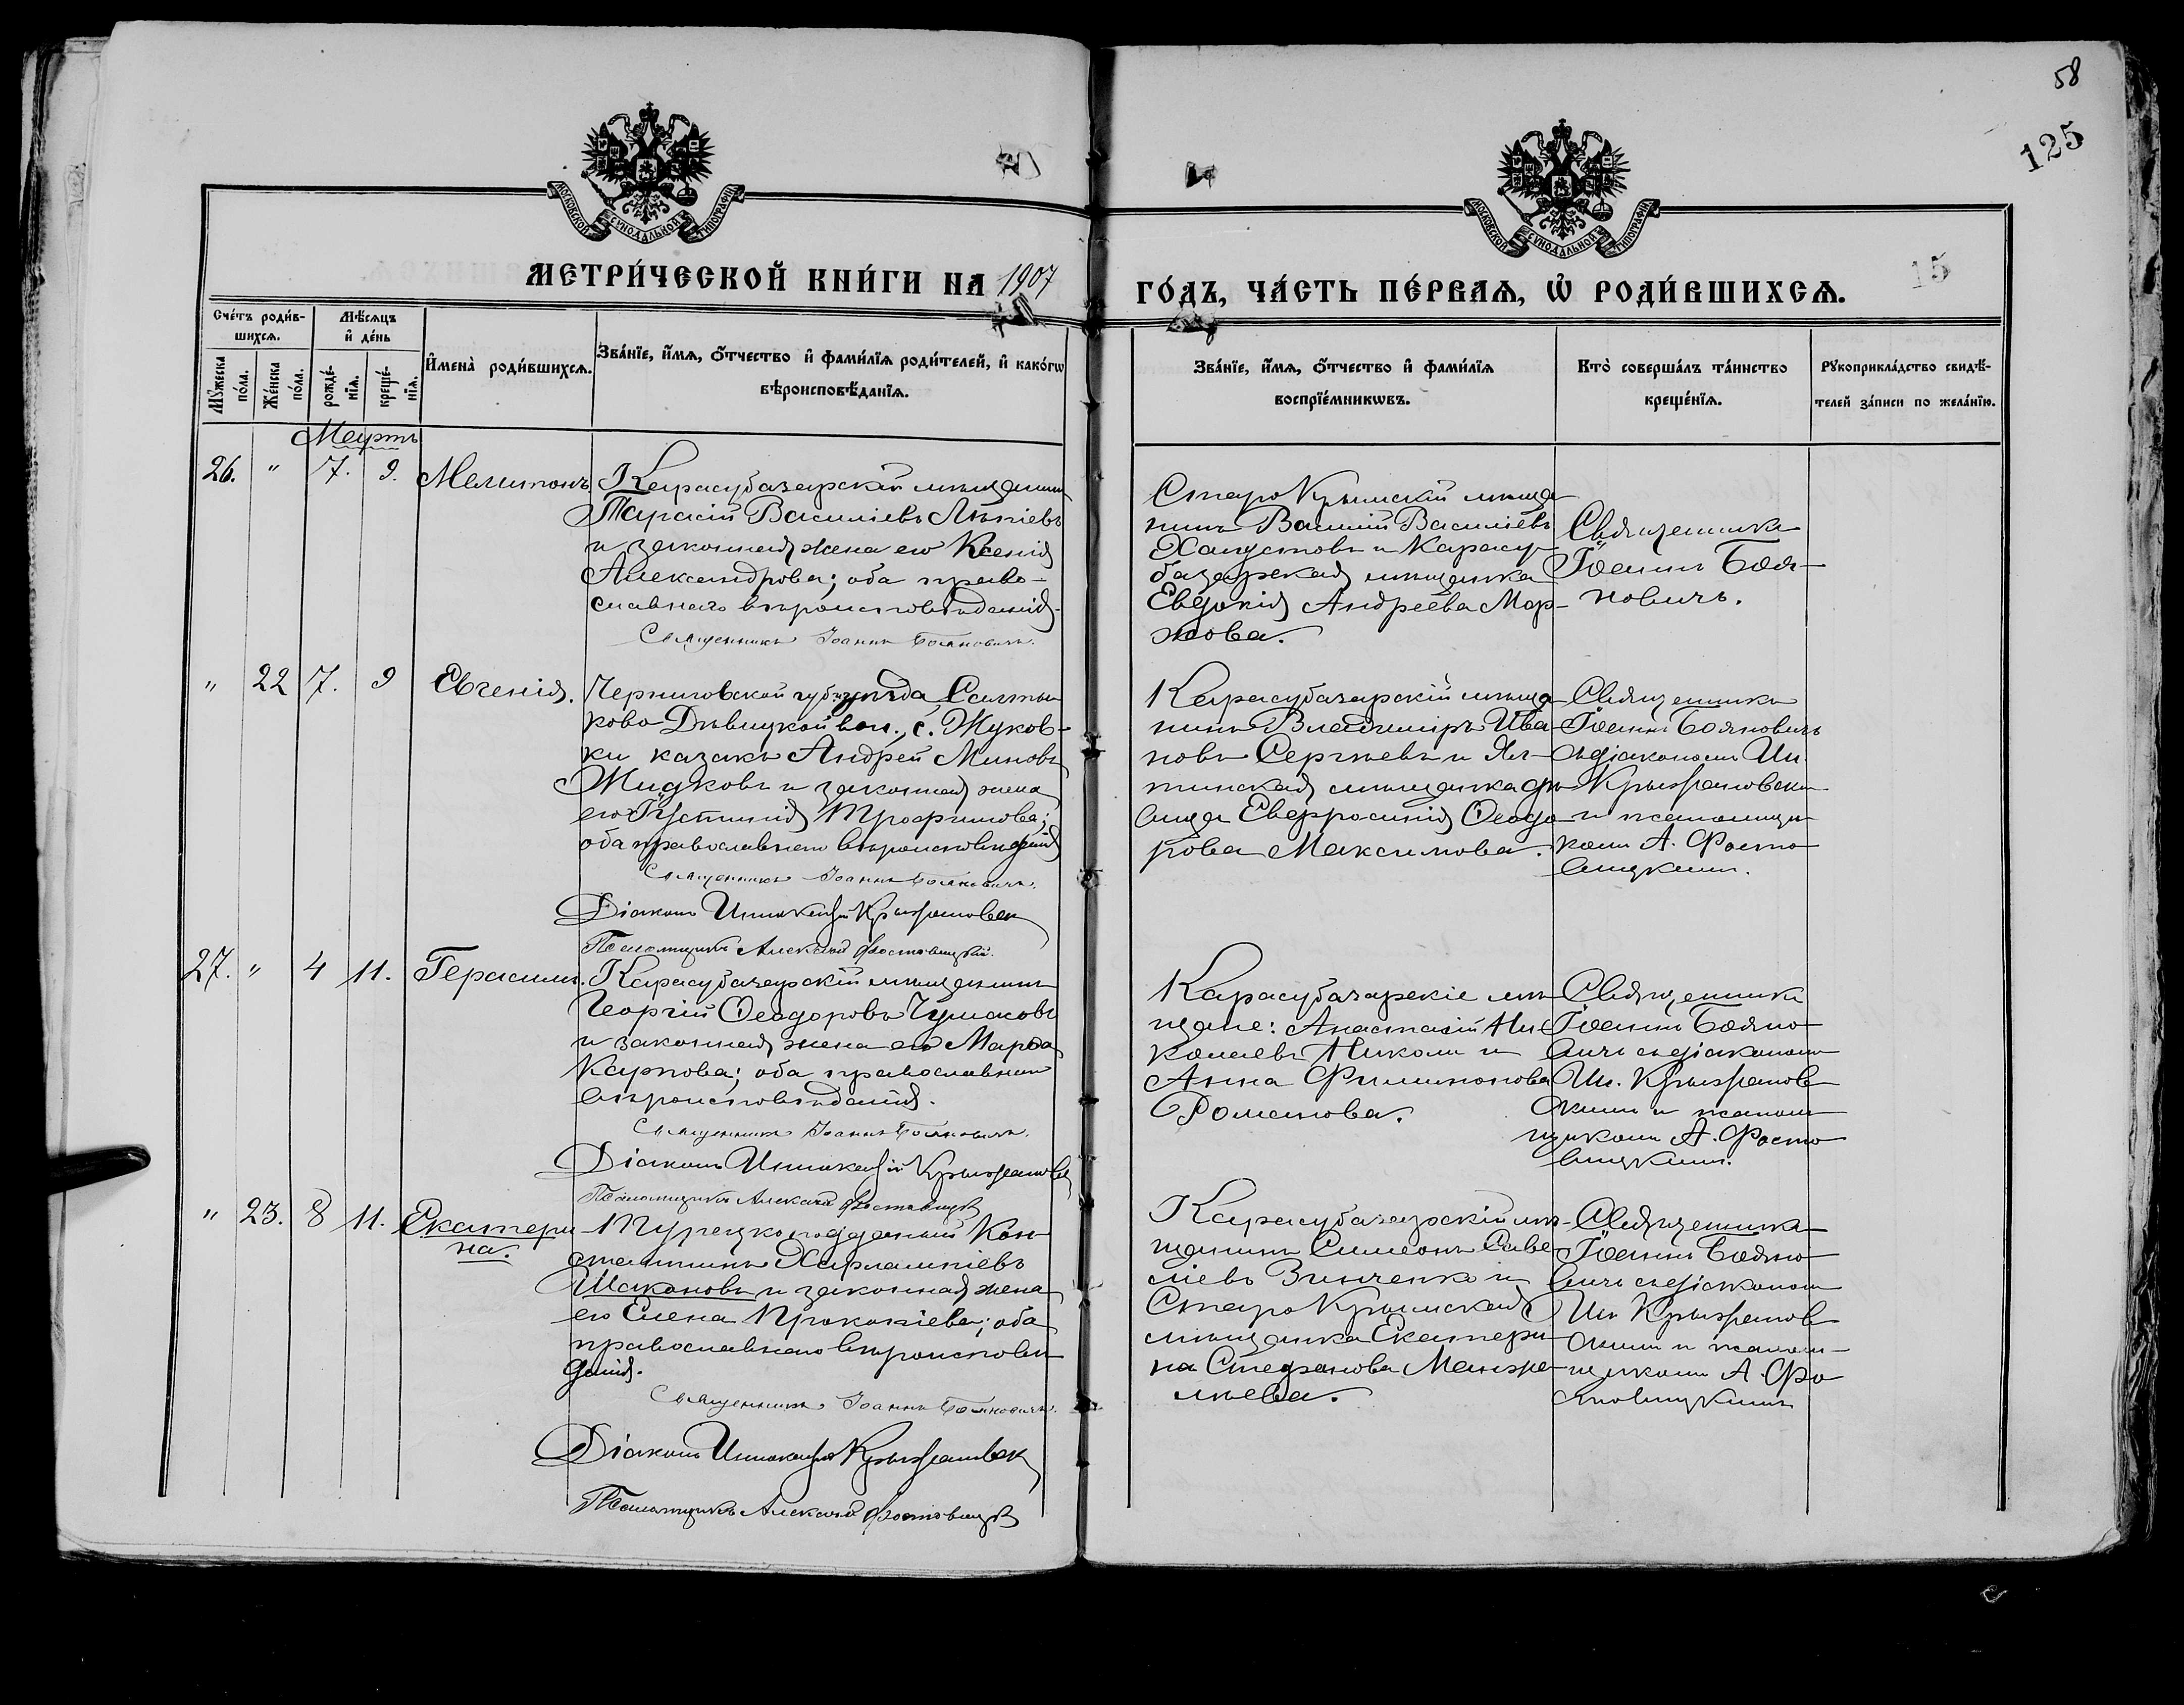 58
125
МОСКОВСКОЙ СѴНОДАЛЬНОЙ ТИПОГРАФІИ
МОСКОВСКОЙ СѴНОДАЛЬНОЙ ТИПОГРАФІИ
МЕТРИ́ЧЕСКОЙ КНИ́ГИ НА 1907
ГО́ДЪ, ЧА́СТЬ ПЕ́РВАѦ, Ѡ҆ РОДИ́ВШИХСѦ.
15
Сче́тъ роди́в-
шихсѧ.
Мѣ́сѧцъ
и҆ де́нь
Мꙋ́жеска
по́ла.
Же́нска
по́ла.
рожде́-
нїѧ.
креще́-
нїѧ.
И҆мена̀ роди́вшихсѧ.
Зва́нїе, и҆́мѧ, ѻ҆́тчество и҆ фами́лїѧ роди́телей, и҆ како́гѡ
вѣроисповѣ́данїѧ.
Зва́нїе, и҆́мѧ, ѻ҆́тчество и҆ фами́лїѧ
воспрїе́мникѡвъ.
Кто̀ соверша́лъ та́инство
креще́нїѧ.
Рꙋкоприкла́дство свидѣ́-
телей за́писи по жела́нїю.
Мартъ
26. " 7. 9. Мелитонъ
Карасубазарскій мѣщанинъ
Тарасій Василіевъ
и законная жена его Ксенія
Александрова; оба право-
славнаго вѣроисповѣданія.
Священникъ Іоаннъ Бояновичъ.
Старо Крымскій мѣща
нинъ Василій Василіевъ
Хаустовъ и Карасу-
базарская мѣщанка
Евдокія Андреева Мор-
жова.
Священникъ
Іоаннъ Боя-
новичъ.
" 22 7. 9 Евгенія.
Черниговской губ. уѣзда Салты
ково-Дѣвицкой вол., с. Жуков-
ки казакъ Андрей Миновъ
Жидковъ и законная жена
его Іустинія Трофимова;
оба православнаго вѣроисповѣданія
Священникъ Іоаннъ Бояновичъ.
Діаконъ Иннокентій
Псаломщикъ Алексѣй Фостовицкій.
Карасубазарскій мѣща
нинъ Владиміръ Ива
новъ Сергѣевъ и Ял-
тинская мѣщанка дѣ-
вица Евфросинія Ѳеодо
рова Максимова.
Священникъ
Іоаннъ Бояновичъ
съ діакономъ Ин.
и псаломщи
комъ А. Фосто
вицкимъ.
27. " 4 11. Герасимъ.
Карасубазарскій мѣщанинъ
Георгій Ѳеодоровъ Чумаковъ
и законная жена его Марѳа
Карпова; оба православнаго
вѣроисповѣданія.
Священникъ Іоаннъ Бояновичъ.
Діаконъ Иннокентій
Псаломщикъ Алексѣй Фостовицкій
Карасубазарскіе мѣ
щане: Анастасій Ни
колаевъ Николи и
Анна Филимонова
Романова.
Священникъ
Іоаннъ Бояно
вичъ съ діакономъ
Ин.
скимъ и псалом
щикомъ А. Фосто
вицкимъ.
" 23. 8 11. Екатери
на.
Турецко подданный Кон
стантинъ Харлампіевъ
Шакановъ и законная жена
его Елена Прокопіева; оба
православнаго вѣроисповѣ
данія.
Священникъ Іоаннъ Бояновичъ.
Діаконъ Иннокентій
Псаломщикъ Алексѣй Фостовицкій
Карасубазарскій мѣ-
щанинъ Симеонъ Саве
ліевъ Винченко и
Старо Крымская
мѣщанка Екатери
на Стефанова Манже-
лѣева.
Священникъ
Іоаннъ Бояно
вичъ съ діакономъ
Ин.
скимъ и псалом-
щикомъ А. Фо
стовицкимъ